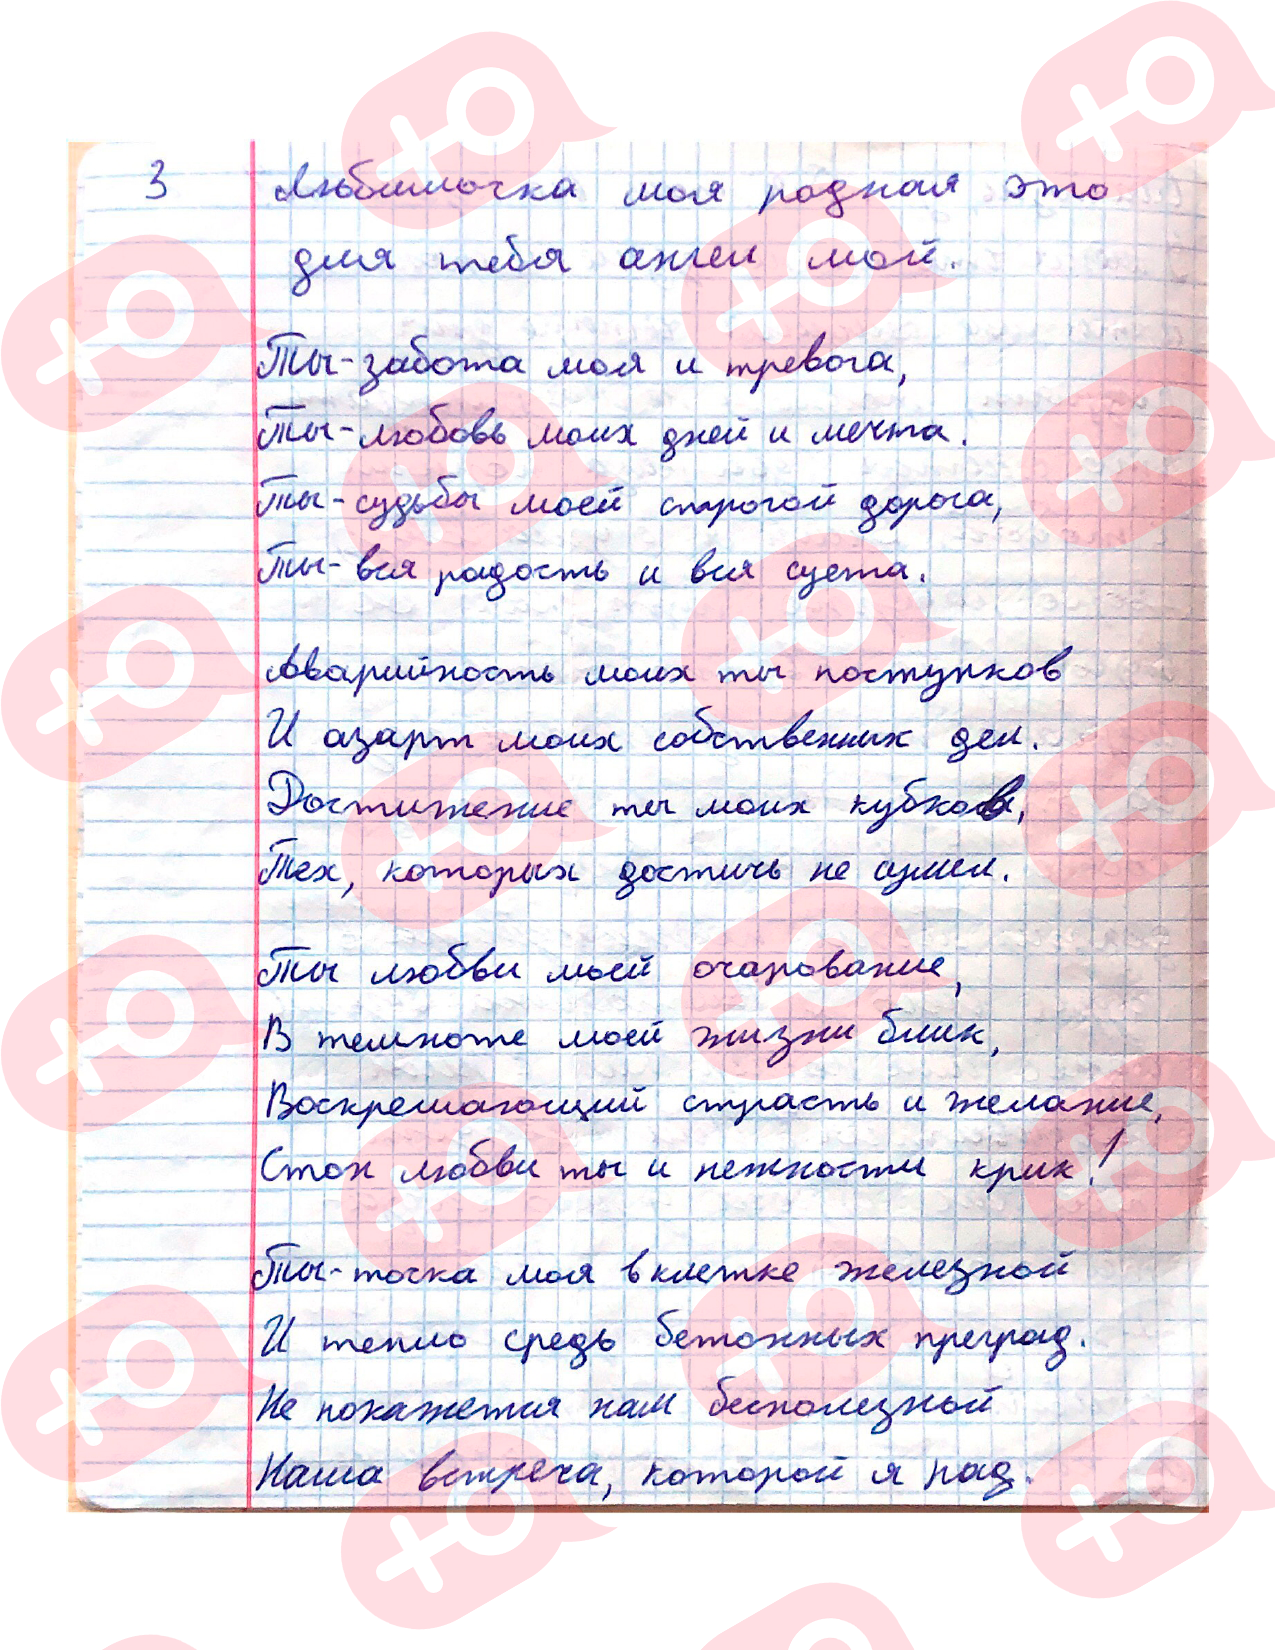 3 Любимочка моя родная это
для тебя ангел мой.
Ты-забота моя и тревога,
Ты-любовь моих дней и мечта.
Ты-судьбы моей строгой дорога,
Ты-вся радость и вся суета.
Аварийность моих ты поступков
И азарт моих собственных дел.
Достижение ты моих кубков,
Тех, которых достичь не сумел.
Ты любви моей очарование,
В темноте моей жизни блик,
Воскрешающий страсть и желание,
Стон любви ты и нежности крик!
Ты-точка моя в клетке железной
И тепло средь бетонных преград.
Не покажется нам бесполезной
Наша встреча, которой я рад.